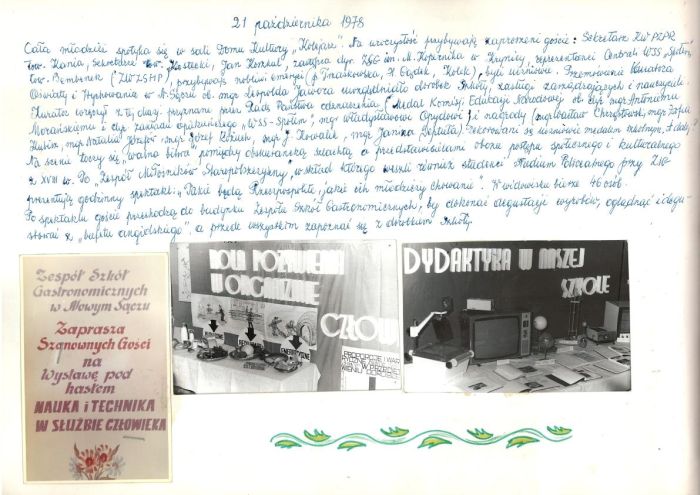 21 października 1978
Cała młodzież spotyka się w sali Domu Kultury „Kolejarz”. Na uroczystość przybywają zaproszeni goście: Sekretarz KW PZPR
tow. Kania, sekretarz tow. Kostecki, Jan Koszkul, zastępca dyr. ZSG im. M. Kopernika w Krynicy, reprezentanci Centrali WSS „Społem”,
tow. Bembenek (ZW ZSMP), przybywają rodzice i emeryci (p. Tmaskowska, H. Gądek, Kołek), byli uczniowie. Przemówienie Kuratora
Oświaty i Wychowania w N. Sączu ob. mgr Leopolda Jawora uwzględniało dorobek Szkoły, zasługi zarządzających i nauczycieli.
Kurator wręczył z tej okazji przyznane przez Radę Państwa odznaczenia (Medal Komisji Edukacji Narodowej ob. dyr. mgr Antoniemu
Morańskiemu i dyr. zakładu opiekuńczego „WSS-Społem”, mgr Władysławowi Gryzłowi) i nagrody (mgr Wacław Chrząstowski, mgr Zofia
Kubin, mgr Natalia Józefo mgr Józef Bożuch, mgr J. Kowalik, mgr Janina Reptuła). Dekorowani są uczniowie medalem szkolnym
Na scenie toczy się „walna bitwa” pomiędzy obskurancką szlachtą a przedstawicielami obozu postępu społecznego i kulturalnego
z XVIII w. To „Zespół Miłośników Staropolszczyzny”, w skład którego weszli również studenci Studium Policealnego przy ZSG
prezentują godzinny spektakl: „Takie będą Rzeczpospolite, jakie ich młodzieży chowanie”. W widowisku bierze 46 osób.
Po spektaklu goście przechodzą do budynku Zespołu Szkół Gastronomicznych, by dokonać degustacji wyrobów, oglądnąć i degu-
stować z „bufetu angielskiego”, a przede wszystkim zapoznać się z dorobkiem Szkoły.
Zespół Szkół
Gastronomicznych
w Nowym Sączu
Zaprasza
Szanownych Gości
na
Wystawę pod
hasłem
NAUKA i TECHNIKA
W SŁUŻBIE CZŁOWIEKA
ROLA POŻYWIENIA
W ORGANIZMIE
CZŁOW
DYDAKTYKA W NASZEJ
SZKOLE